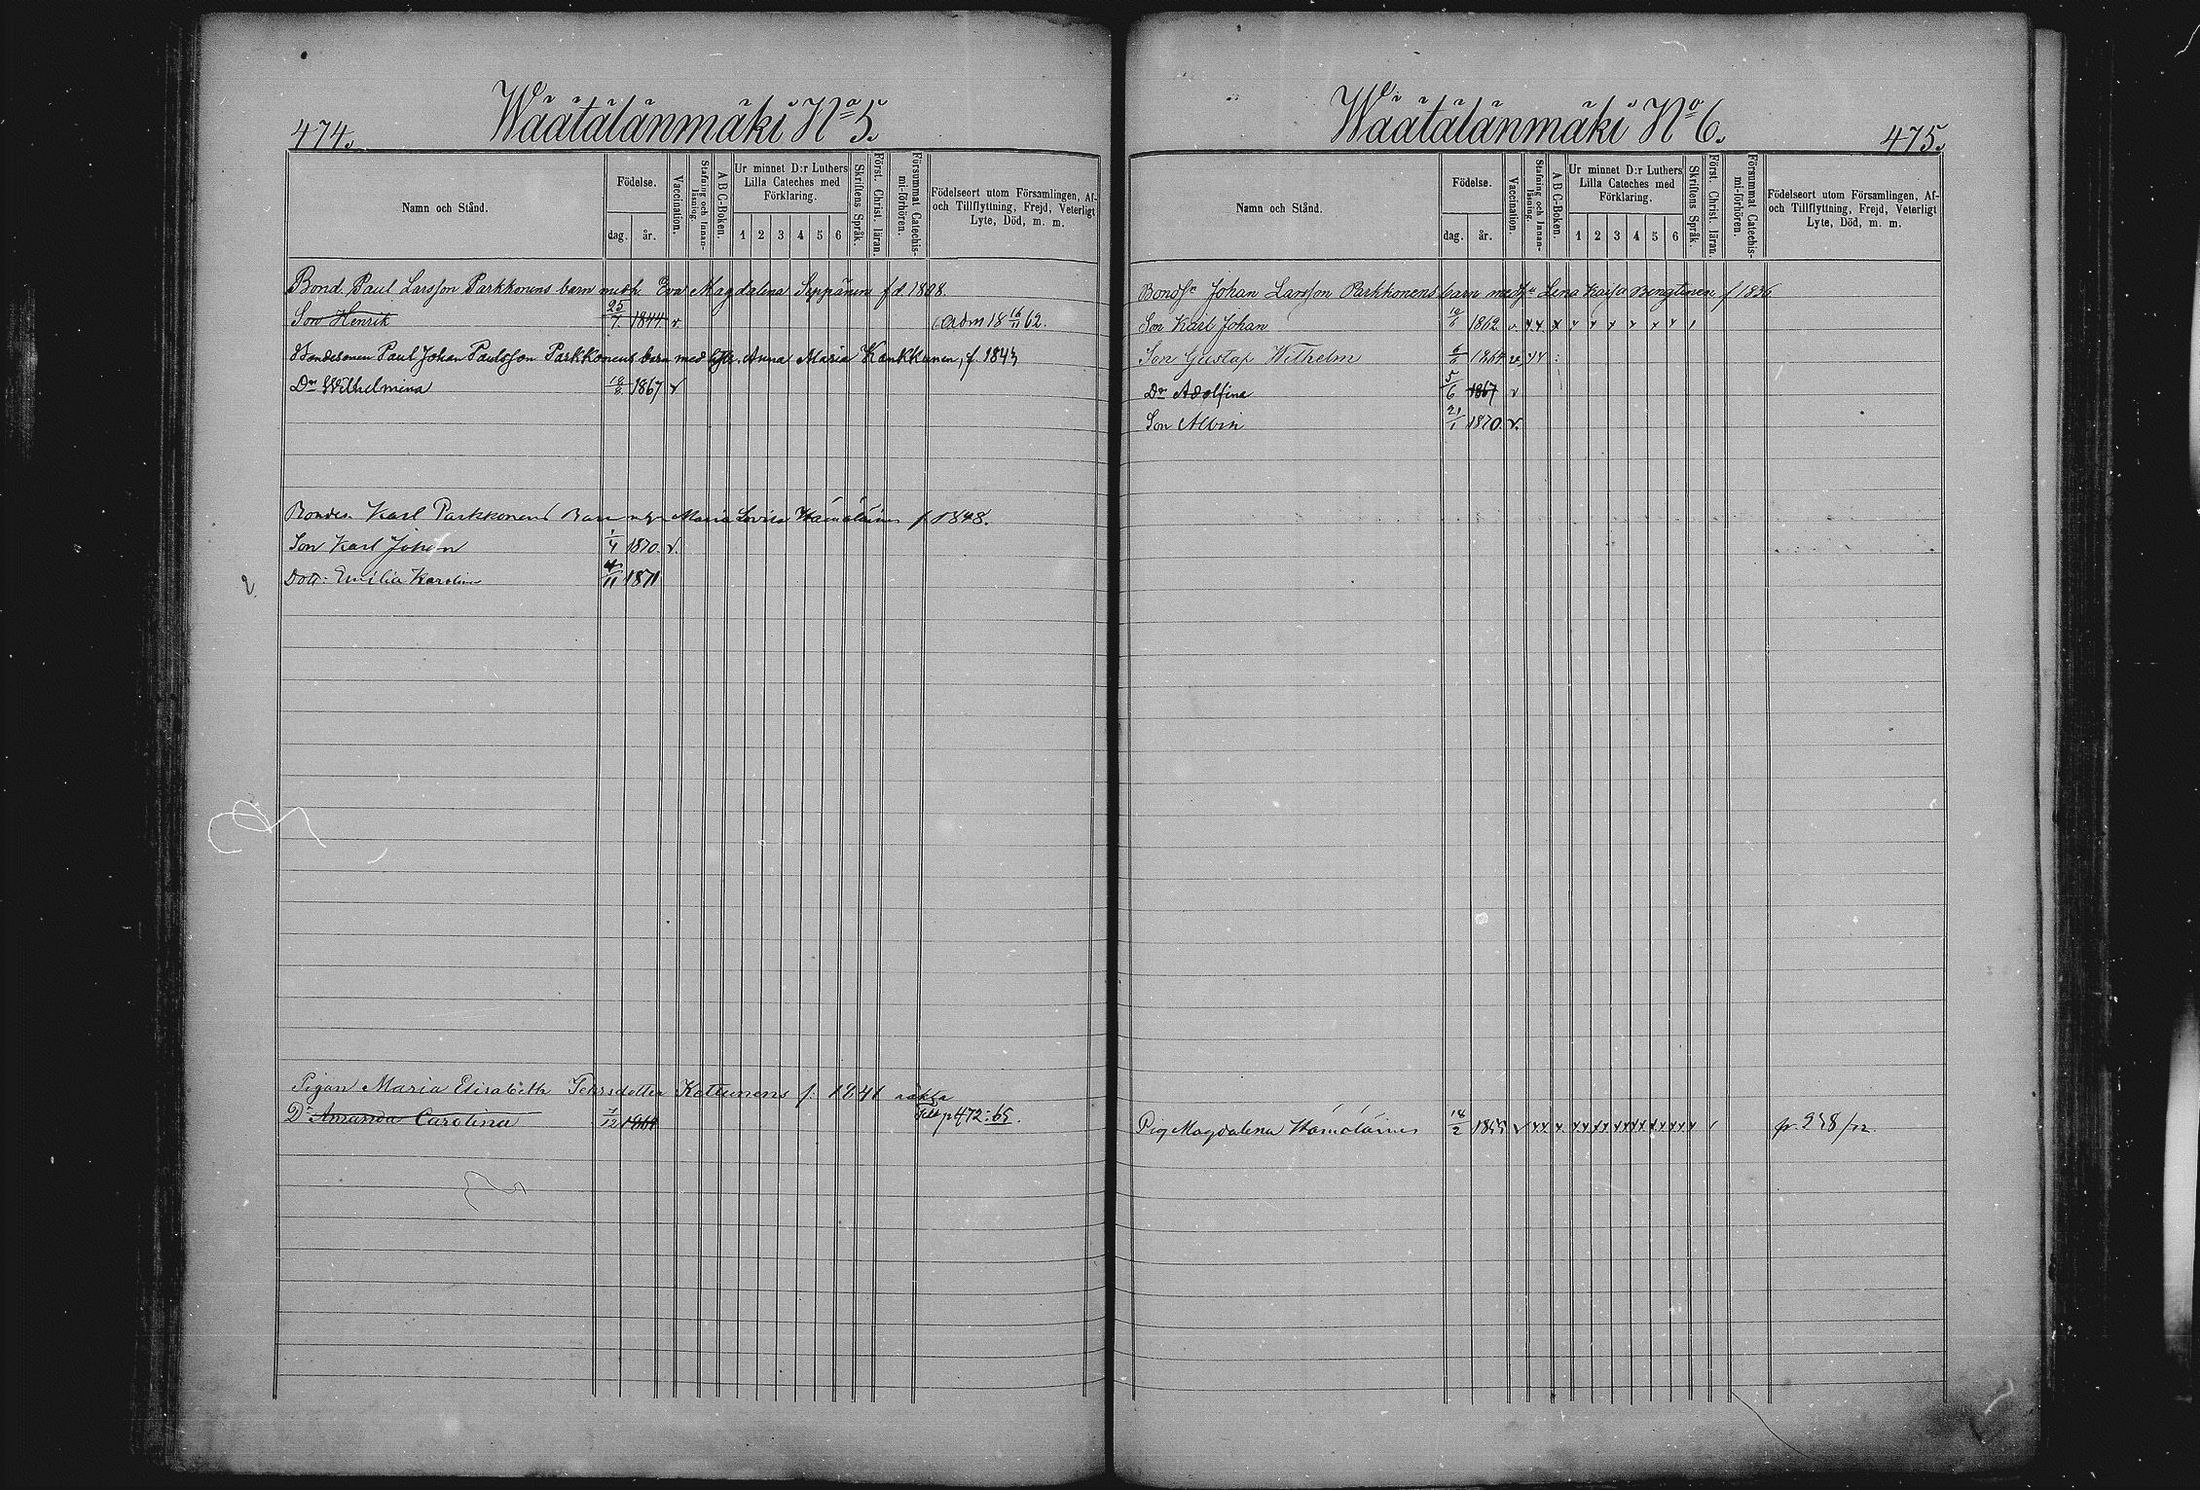 474.
Wäätälänmäki No 5.
Namn och Stånd.
Födelse.
dag.
år.
Vaccination.
Stafning och Innan-
läsning.
A B C-Boken.
Ur minnet D:r Luthers
Lilla Cateches med
Förklaring.
1 2 3 4 5 6
Skriftens Språk.
Först. Christ. läran.
Försummat Catechis-
mi-förhören.
Födelseort utom Församlingen, Af-
och Tillflyttning, Frejd, Veterligt
Lyte, Död, m. m.
Bond. Paul Larsson Parkkonens barn m. h. Eva Magdalena Seppänen f. 1808.
Son Henrik 25/7 1844 v Adm 18 16/11 62.
Bondesonen Paul Johan Paulsson Parkkonens barn med Anna Maria Kankkunen, f 1843
Dr Wilhelmina 10/8 1867 v
Bondes. Karl Parkkonens Barn Maria Lovisa Hämäläinen f. 1848.
Son Karl Johan 1/4 1870. v.
Dott: Emilia Karolina 4/11 1871
Pigan Maria Elisabeth Petersdotter Kettunens f. 1841 oäkta
Dr Amanda Carolina 7/12 1864 Till p 472:65.
Wäätälänmäki No 6.
475.
Namn och Stånd.
Födelse.
dag.
år.
Vaccination.
Stafning och Innan-
läsning.
A B C-Boken.
Ur minnet D:r Luthers
Lilla Cateches med
Förklaring.
1 2 3 4 5 6
Skriftens Språk.
Först. Christ. läran.
Försummat Catechis-
mi-förhören.
Födelseort utom Församlingen, Af-
och Tillflyttning, Frejd, Veterligt
Lyte, Död, m. m.
Bonds Johan Larsson Parkkonens barn med Lena Kaisa Bengtinen f 1836
Son Karl Johan 10/6 1862 v
Son Gustaf Wilhelm 6/6 1864 v
Dr Adolfina 5/6 1867 v
Son Albin 21/1 1870. v.
Pig Magdalena Hämäläinen 18/2 1855 v fr. 238/72.